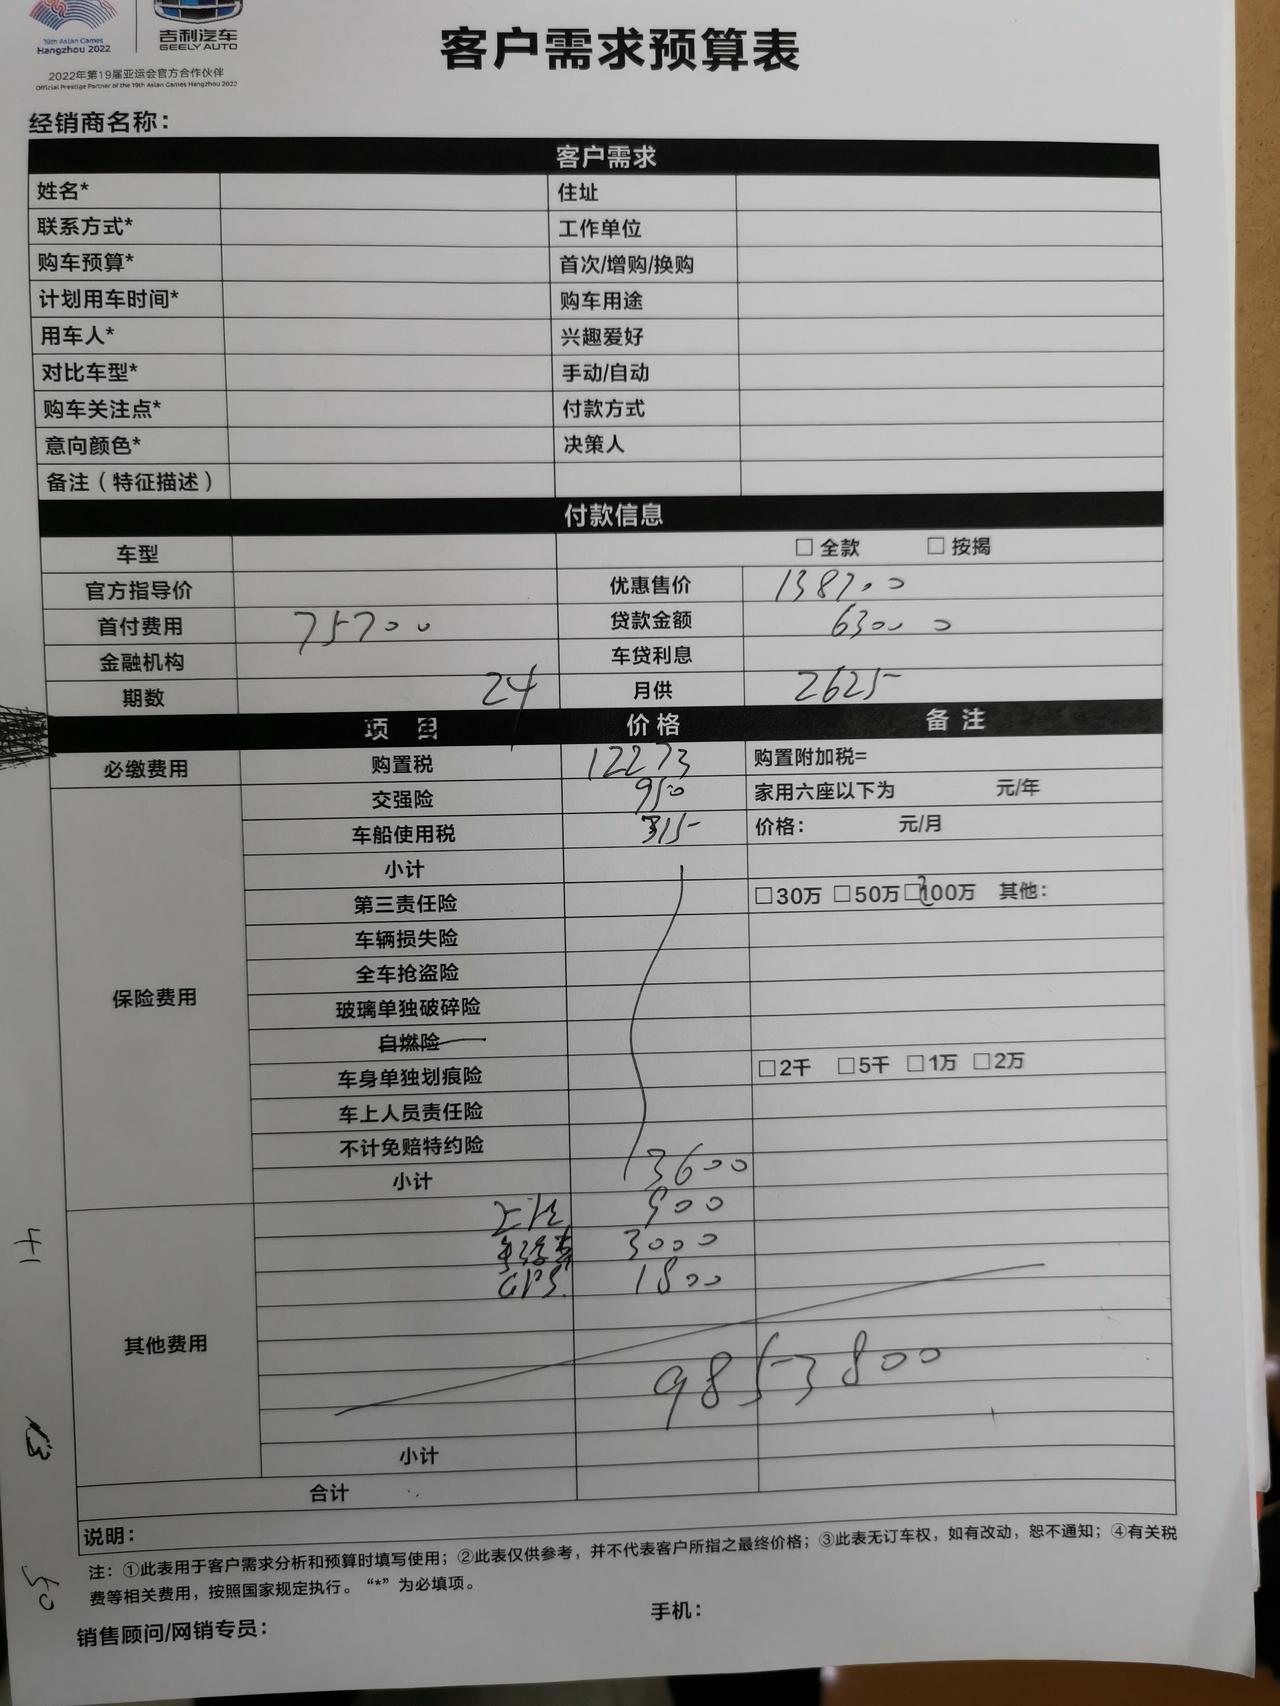 19th Asian Games
Hangzhou 2022
吉利汽车
GEELY AUTO
2022年第19届亚运会官方合作伙伴
Official Prestige Partner of the 19th Asian Games Hangzhou 2022
客户需求预算表
经销商名称：
客户需求
姓名* 住址
联系方式* 工作单位
购车预算* 首次/增购/换购
计划用车时间* 购车用途
用车人* 兴趣爱好
对比车型* 手动/自动
购车关注点* 付款方式
意向颜色* 决策人
备注（特征描述）
付款信息
车型 □ 全款 □ 按揭
官方指导价 优惠售价 138700
首付费用 75700 贷款金额 63000
金融机构 车贷利息
期数 24 月供 2625
项 目 价 格 备 注
必缴费用 购置税 12273 购置附加税=
交强险 950 家用六座以下为 元/年
车船使用税 315 价格： 元/月
小计
第三责任险 □30万 □50万 □100万 其他：
车辆损失险
全车抢盗险
保险费用
玻璃单独破碎险
自燃险
车身单独划痕险 □2千 □5千 □1万 □2万
车上人员责任险
不计免赔特约险
小计 3600
上牌 500
3000
GPS 1800
其他费用
9853800
小计
合计
说明：
注：①此表用于客户需求分析和预算时填写使用；②此表仅供参考，并不代表客户所指之最终价格；③此表无订车权，如有改动，恕不通知；④有关税
费等相关费用，按照国家规定执行。“*”为必填项。
销售顾问/网销专员： 手机：